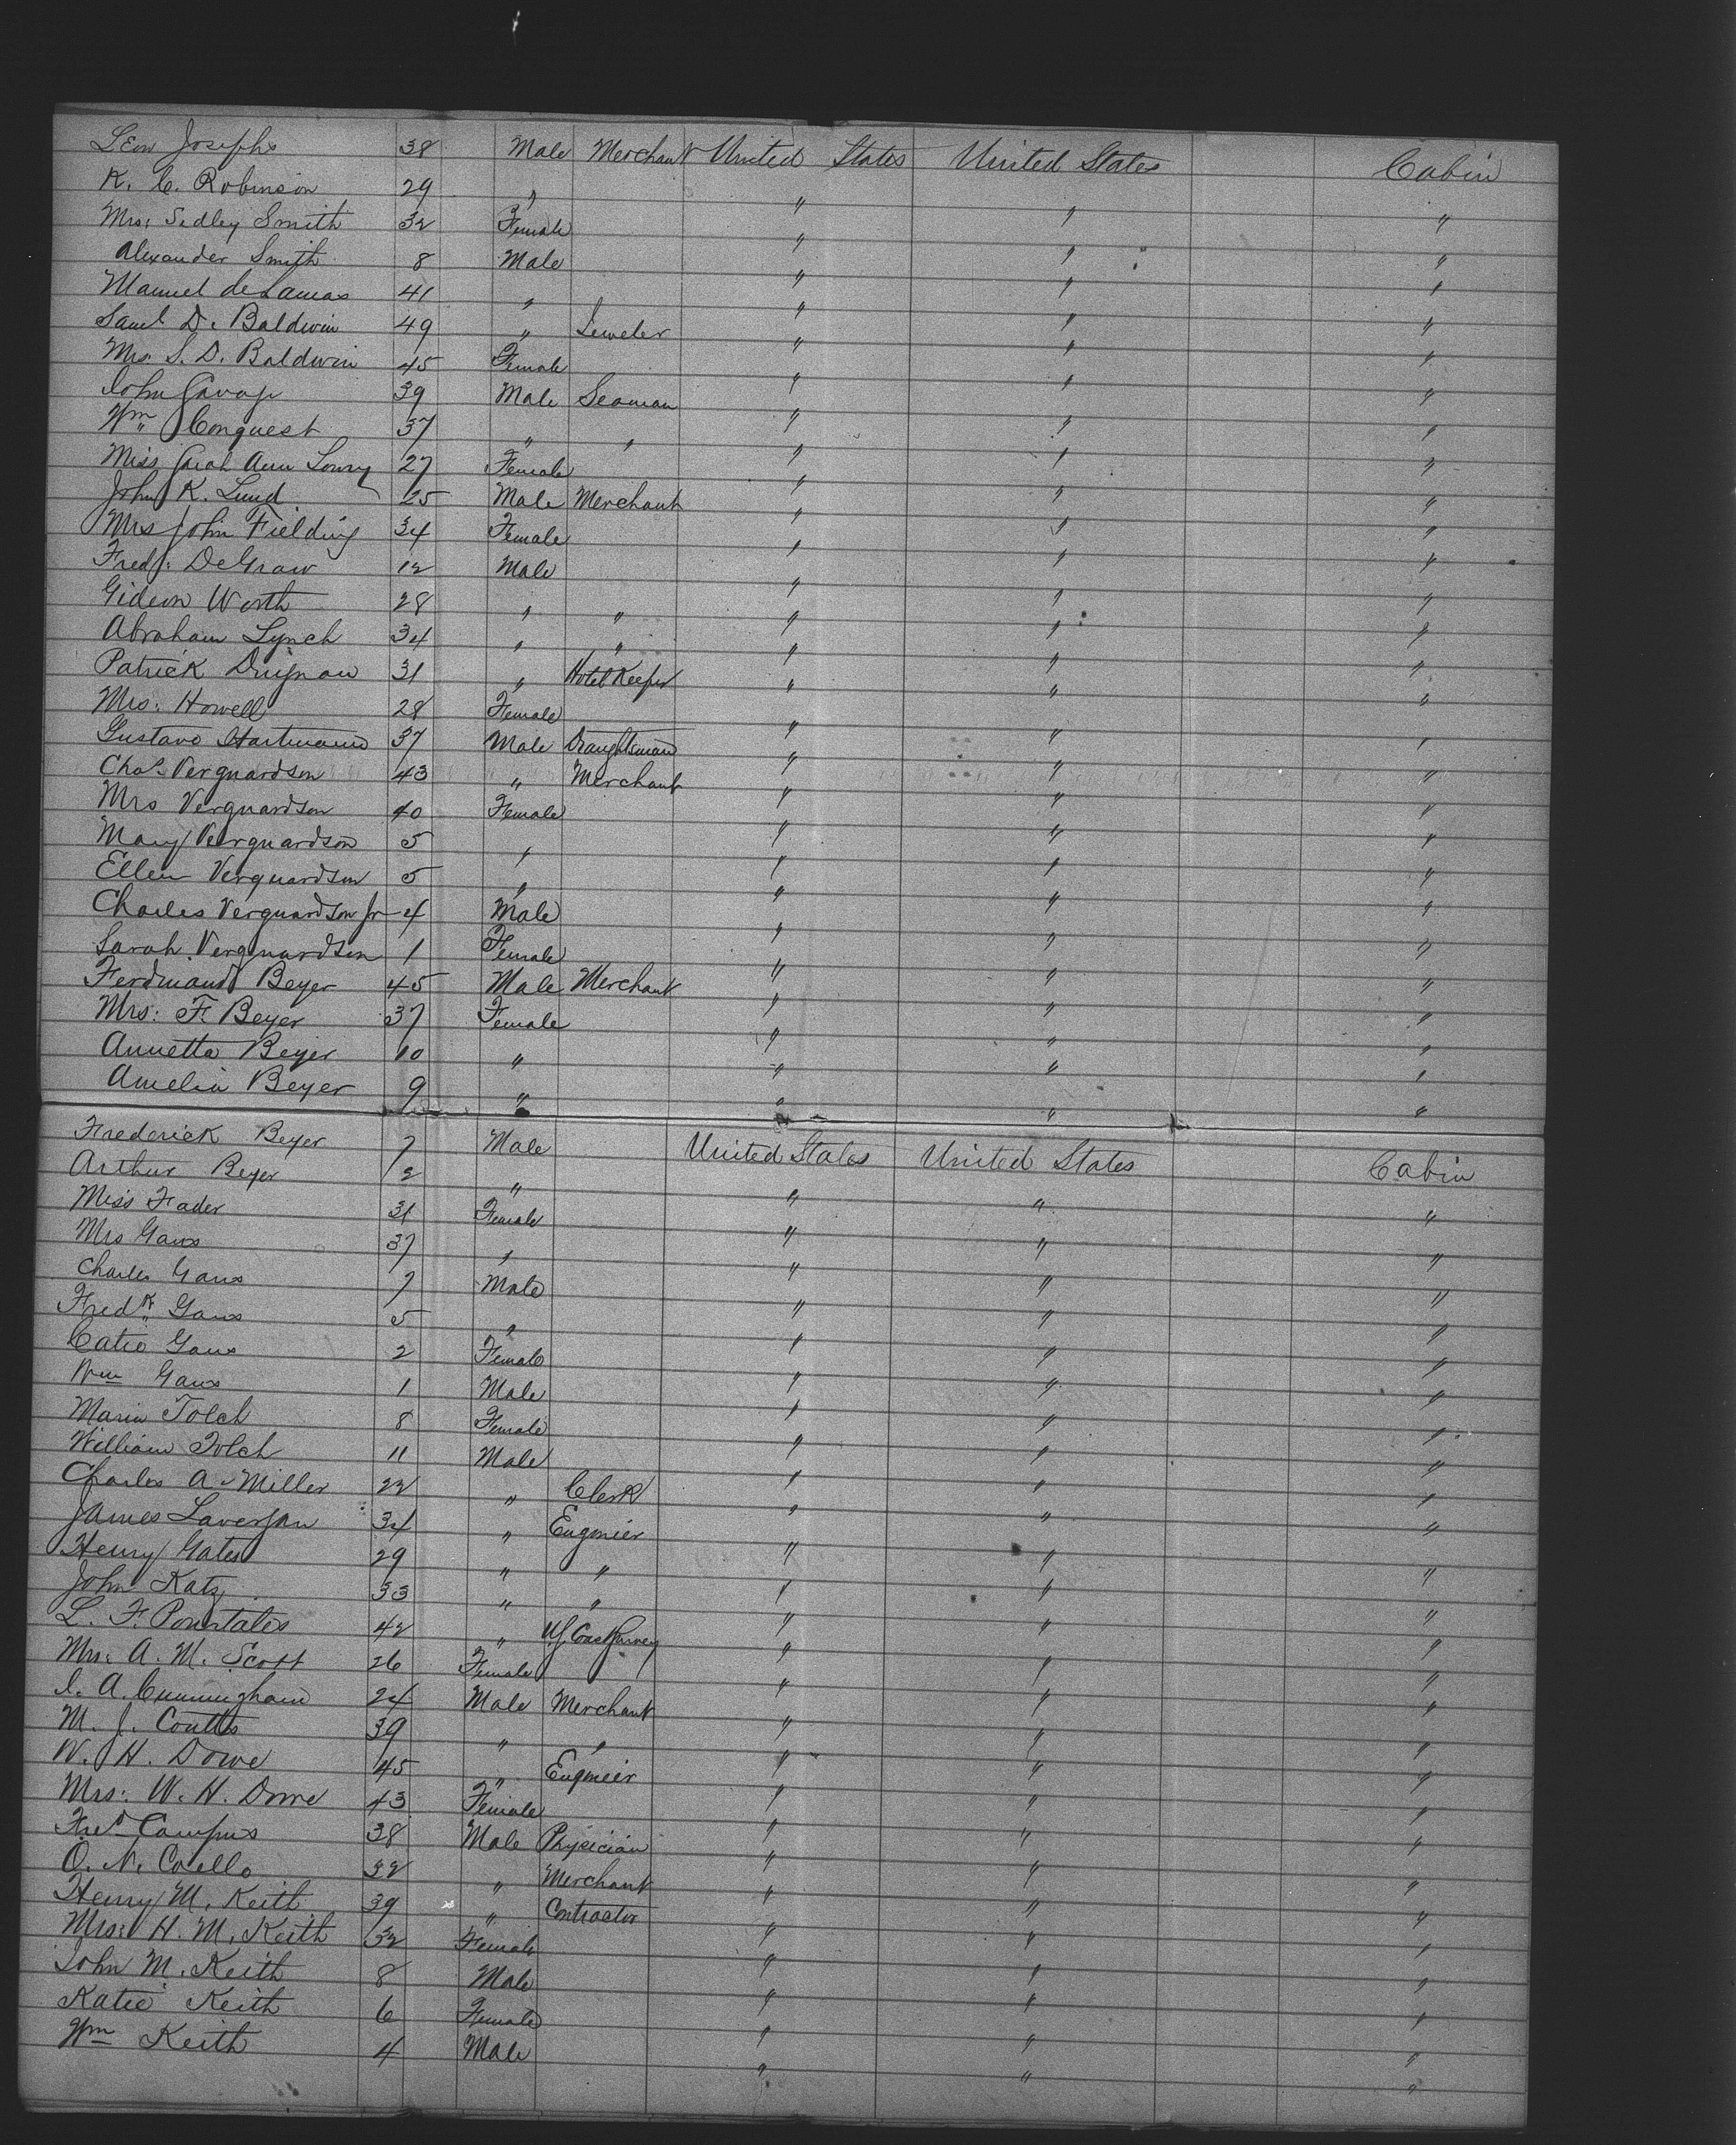 Leon Josephs 38 Male Merchant United States United States Cabin
K. C. Robinson 29 " " " "
Mrs: Sedley Smith 32 Female " " "
Alexander Smith 8 Male " " "
Manuel de Lamas 41 " " " "
Saml D. Baldwin 49 " Jeweler " " "
Mrs. S. D. Baldwin 45 Female " " "
John Savage 39 Male Seaman " " "
Wm Conquest 37 " " " " "
Miss Sarah Ann Lowry 27 Female " " "
John K. Lund 25 Male Merchant " " "
Mrs John Fielding 34 Female " " "
Fred: DeGraw 12 Male " " "
Gideon Worth 28 " " " " "
Abraham Lynch 34 " " " " "
Patrick Duignan 31 " Hotel Keeper " " "
Mrs: Howell 28 Female " " "
Gustave Hartmann 37 Male Draughtsman " " "
Chas. Verguardson 43 " Merchant " " "
Mrs Verguardson 40 Female " " "
Mary Verguardson 5 " " " "
Ellen Verguardson 5 " " " "
Charles Verguardson Jr 4 Male " " "
Sarah Verguardson 1 Female " " "
Ferdinand Beyer 45 Male Merchant " " "
Mrs: F. Beyer 37 Female " " "
Annetta Beyer 10 " " " "
Amelia Beyer 9 " " " "
Frederick Beyer 7 Male United States United States Cabin
Arthur Beyer 2 " " " "
Miss Fader 31 Female " " "
Mrs Gans 37 " " " "
Charles Gans 7 Male " " "
Fredk Gans 5 " " " "
Catie Gans 2 Female " " "
Wm Gans 1 Male " " "
Maria Tolch 8 Female " " "
William Tolch 11 Male " " "
Charles A. Miller 22 " Clerk " " "
James Lavergan 34 " Engineer " " "
Henry Gates 29 " " " " "
John Katz 33 " " " " "
L. F. Pourtales 42 " US Coast Survey " " "
Mrs: A. M. Scott 26 Female " " "
J. A. Cunningham 24 Male Merchant " " "
M. J. Coutts 39 " " " " "
W. H. Dowe 45 " Engineer " " "
Mrs: W. H. Dowe 43 Female " " "
Fred Campus 38 Male Physician " " "
O. N. Coello 32 " Merchant " " "
Henry M. Keith 39 " Contractor " " "
Mrs: H. M. Keith 32 Female " " "
John M. Keith 8 Male " " "
Katie Keith 6 Female " " "
Wm Keith 4 Male " " "